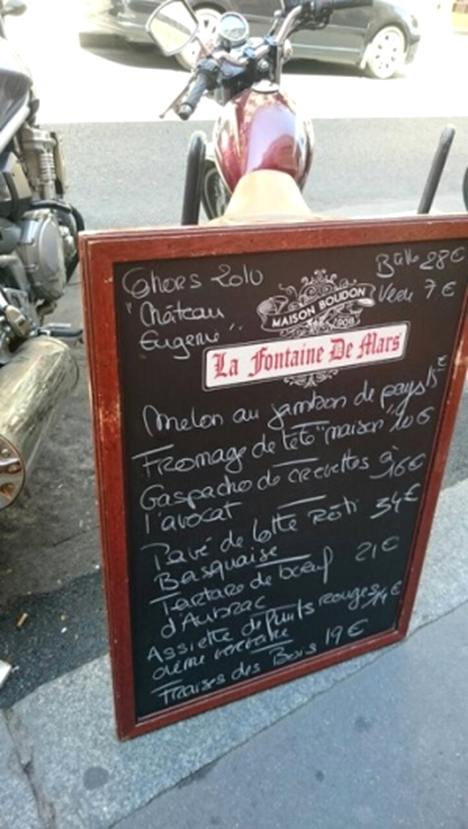 Cahors 2010 Blle 28€
"Château Verre 7€
Eugenie"
MAISON BOUDON
1908
La Fontaine De Mars
Melon au jambon de pays 15€
Fromage de tête "maison" 10€
Gaspacho de crevettes à 16€
l'avocat
Pavé de lotte Rôti 34€
Basquaise
Tartare de boeuf 21€
d'Aubrac
Assiette de fruits rouges 14€
crème
Fraises des Bois 19€